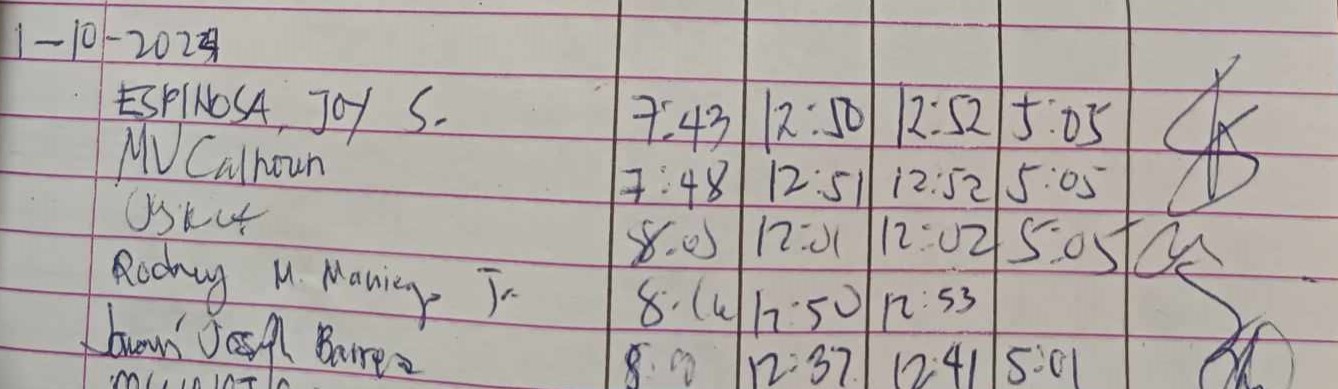 1-10-2024
ESPINOSA, JOY S. 7:43 12:50 12:52 5:05
MV Calhoun 7:48 12:51 12:52 5:05
8:05 12:01 12:02 5:05
Rodney M. Maniego Jr. 12:50 12:53
Joseph 12:37 12:41 5:01